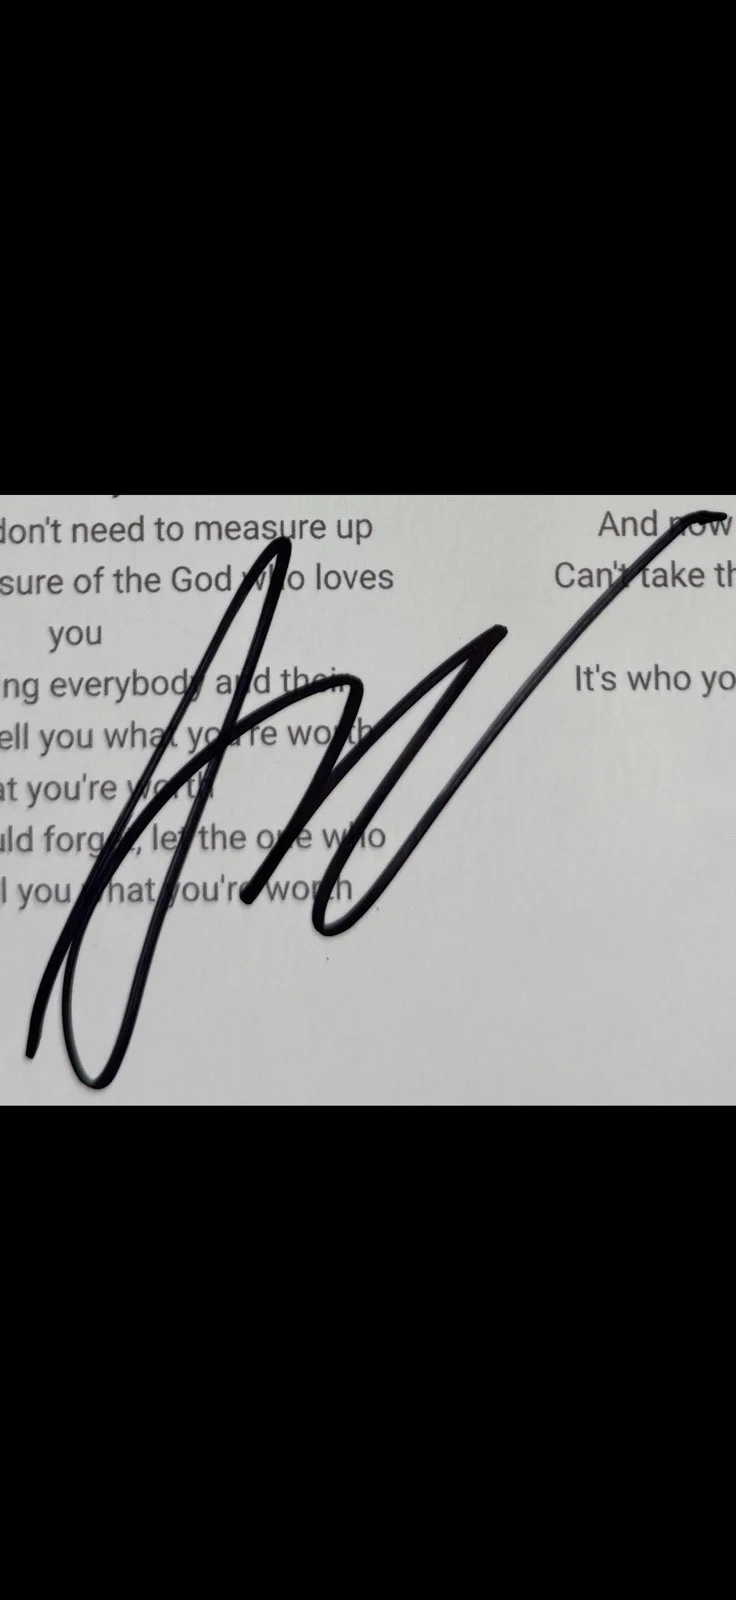 don't need to measure up
sure of the God who loves
you
ng everybody and their
ell you what you're worth
at you're worth
uld forget, let the one who
l you what you're worth
And now
Can't take th
It's who yo